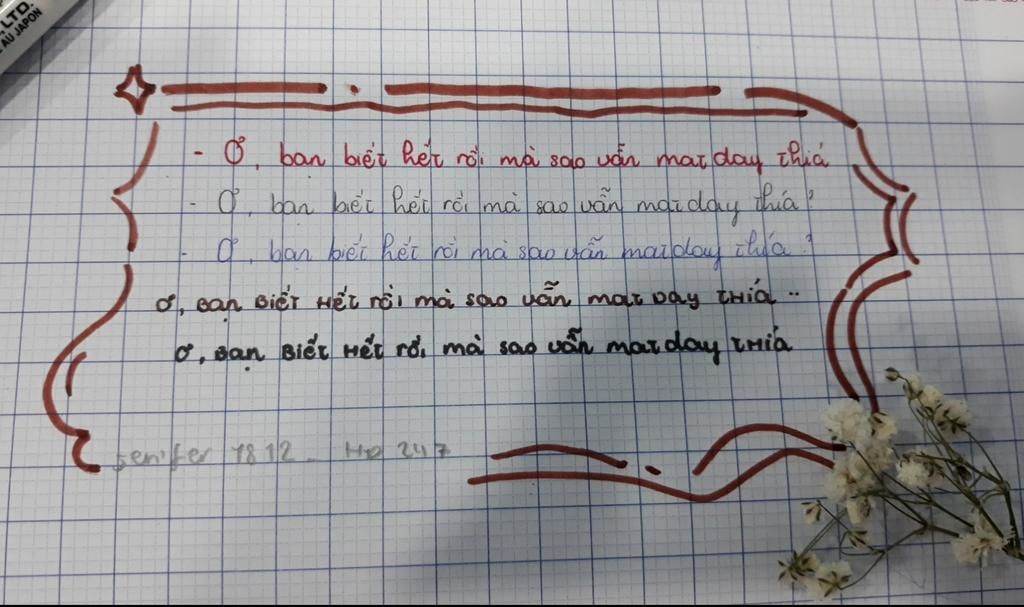 LTD.
AU JAPON
- Ơ, bạn biết hết rồi mà sao vẫn mat day thiá
- Ơ, bạn biết hết rồi mà sao vẫn mat day thiá?
- Ơ, bạn biết hết rồi mà sao vẫn mat day thiá?
Ơ, Bạn Biết Hết rồi mà sao vẫn mat Day tHiá ..
Ơ, Bạn Biết Hết rồi mà sao vẫn mat day tHiá
Senifer 1812 - Hp 247